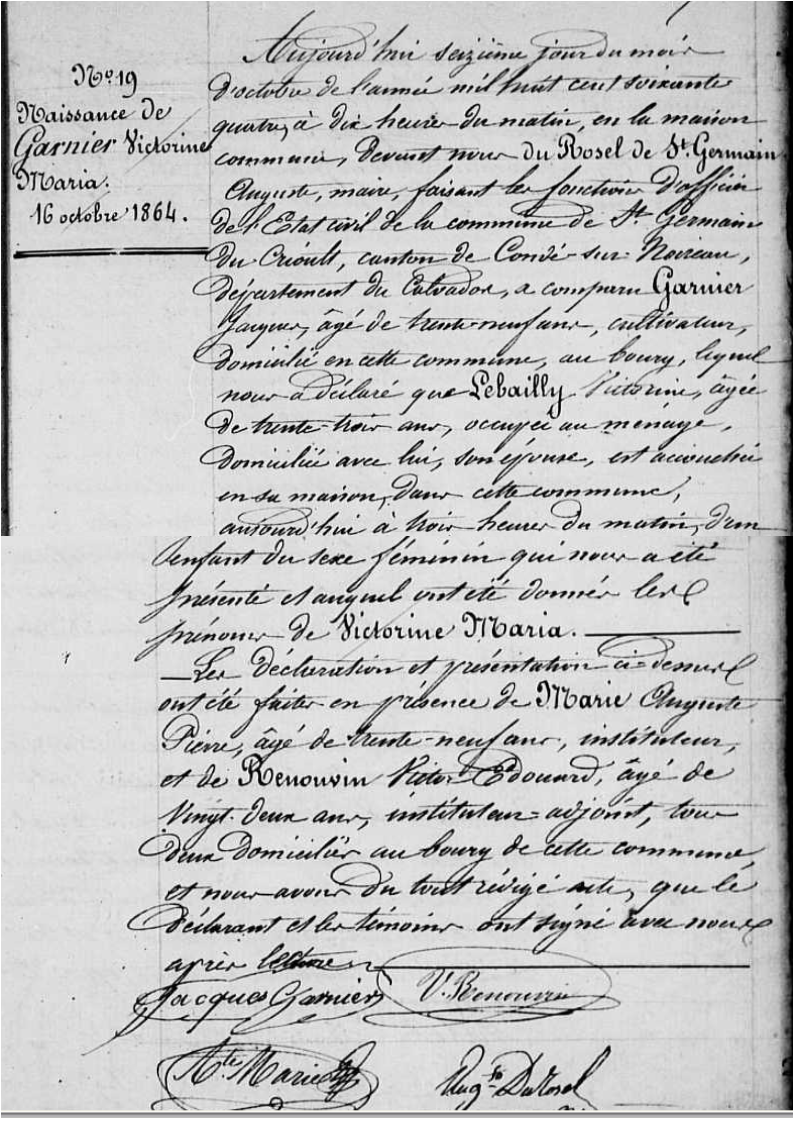 No 19
Naissance de
Garnier Victorine
Maria.
16 octobre 1864.
Aujourd'hui seizième jour du mois
d'octobre de l'année mil huit cent soixante
quatre, à dix heures du matin, en la maison
commune, devant nous du Rosel de St. Germain
Auguste, maire, faisant les fonctions d'officier
de l'Etat civil de la commune de St. Germain
du Crioult, canton de Condé-sur-Noireau,
département du Calvados, a comparu Garnier
Jacques, âgé de trente-neuf ans, cultivateur,
domicilié en cette commune, au bourg, lequel
nous a déclaré que Lebailly Victorine, âgée
de trente-trois ans, occupée au ménage,
domiciliée avec lui, son épouse, est accouchée
en sa maison, dans cette commune,
aujourd'hui à trois heures du matin, d'un
enfant du sexe féminin qui nous a été
présenté et auquel ont été donnés les
prénoms de Victorine Maria.
Les déclaration et présentation ci-dessus
ont été faites en présence de Marie Auguste
Pierre, âgé de trente-neuf ans, instituteur,
et de Renouvin Victor Edouard, âgé de
vingt-deux ans, instituteur-adjoint, tous
deux domiciliés au bourg de cette commune,
et nous avons du tout rédigé acte, que le
déclarant et les témoins ont signé avec nous
après lecture
Jacques Garnier V. Renouvin
Ate Marie Aug. Du Rosel